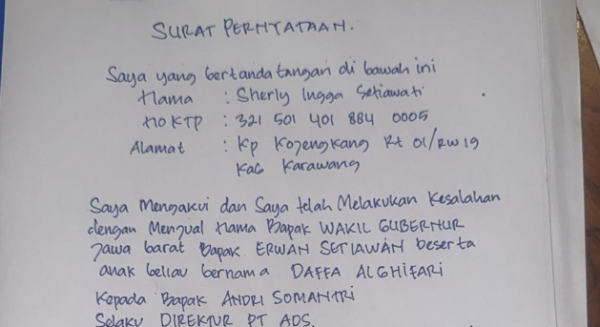 SURAT PERNYATAAN.
Saya yang bertanda tangan di bawah ini
Nama : Sherly Ingga Setiawati
No KTP : 321 501 401 884 0005
Alamat : Kp Kojengkang Rt 01/RW 19
Kab Karawang
Saya Mengakui dan Saya telah Melakukan Kesalahan
dengan Menjual Nama Bapak WAKIL GUBERNUR
Jawa barat Bapak ERWAN SETIAWAN beserta
anak beliau bernama DAFFA ALGHIFARI
Kepada Bapak ANDRI SOMANTRI
Selaku DIREKTUR PT ADS.